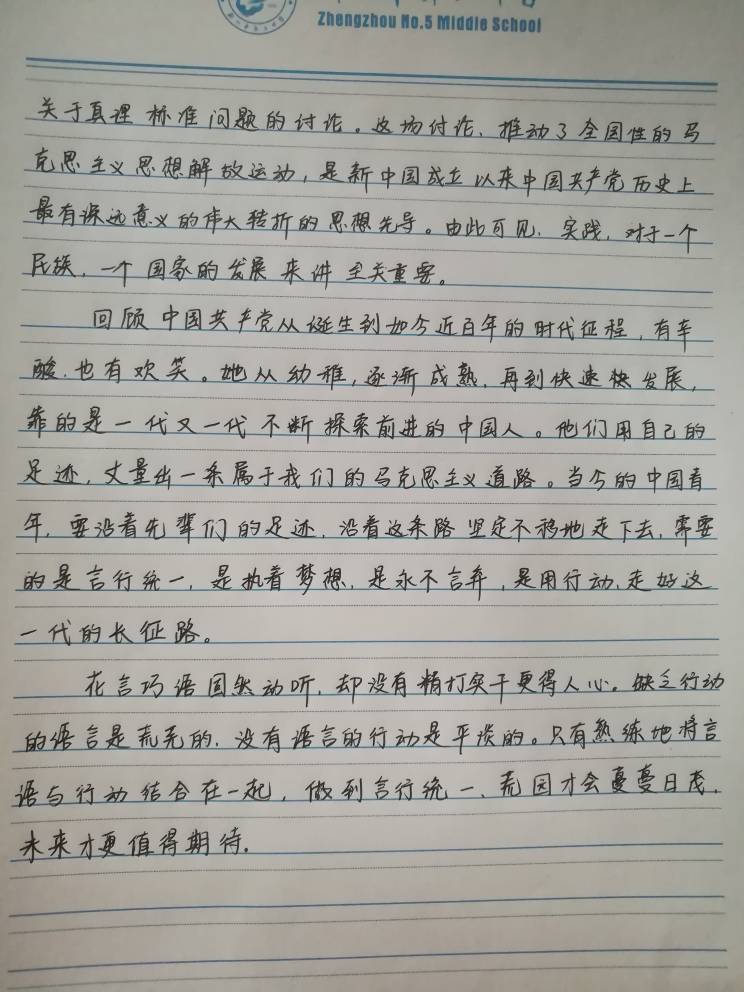 Zhengzhou No.5 Middle School
关于真理标准问题的讨论。这场讨论,推动了全国性的马
克思主义思想解放运动,是新中国成立以来中国共产党历史上
最有深远意义的伟大转折的思想先导。由此可见,实践,对于一个
民族,一个国家的发展来讲至关重要。
回顾中国共产党从诞生到如今近百年的时代征程,有辛
酸,也有欢笑。她从幼稚,逐渐成熟,再到快速快发展,
靠的是一代又一代不断探索前进的中国人。他们用自己的
足迹,丈量出一条属于我们的马克思主义道路。当今的中国青
年,要沿着先辈们的足迹,沿着这条路坚定不移地走下去,需要
的是言行统一,是执着梦想,是永不言弃,是用行动,走好这
一代的长征路。
花言巧语固然动听,却没有精打实干更得人心。缺乏行动
的语言是荒芜的,没有语言的行动是平淡的。只有熟练地将言
语与行动结合在一起,做到言行统一,荒园才会蔓蔓日茂,
未来才更值得期待.